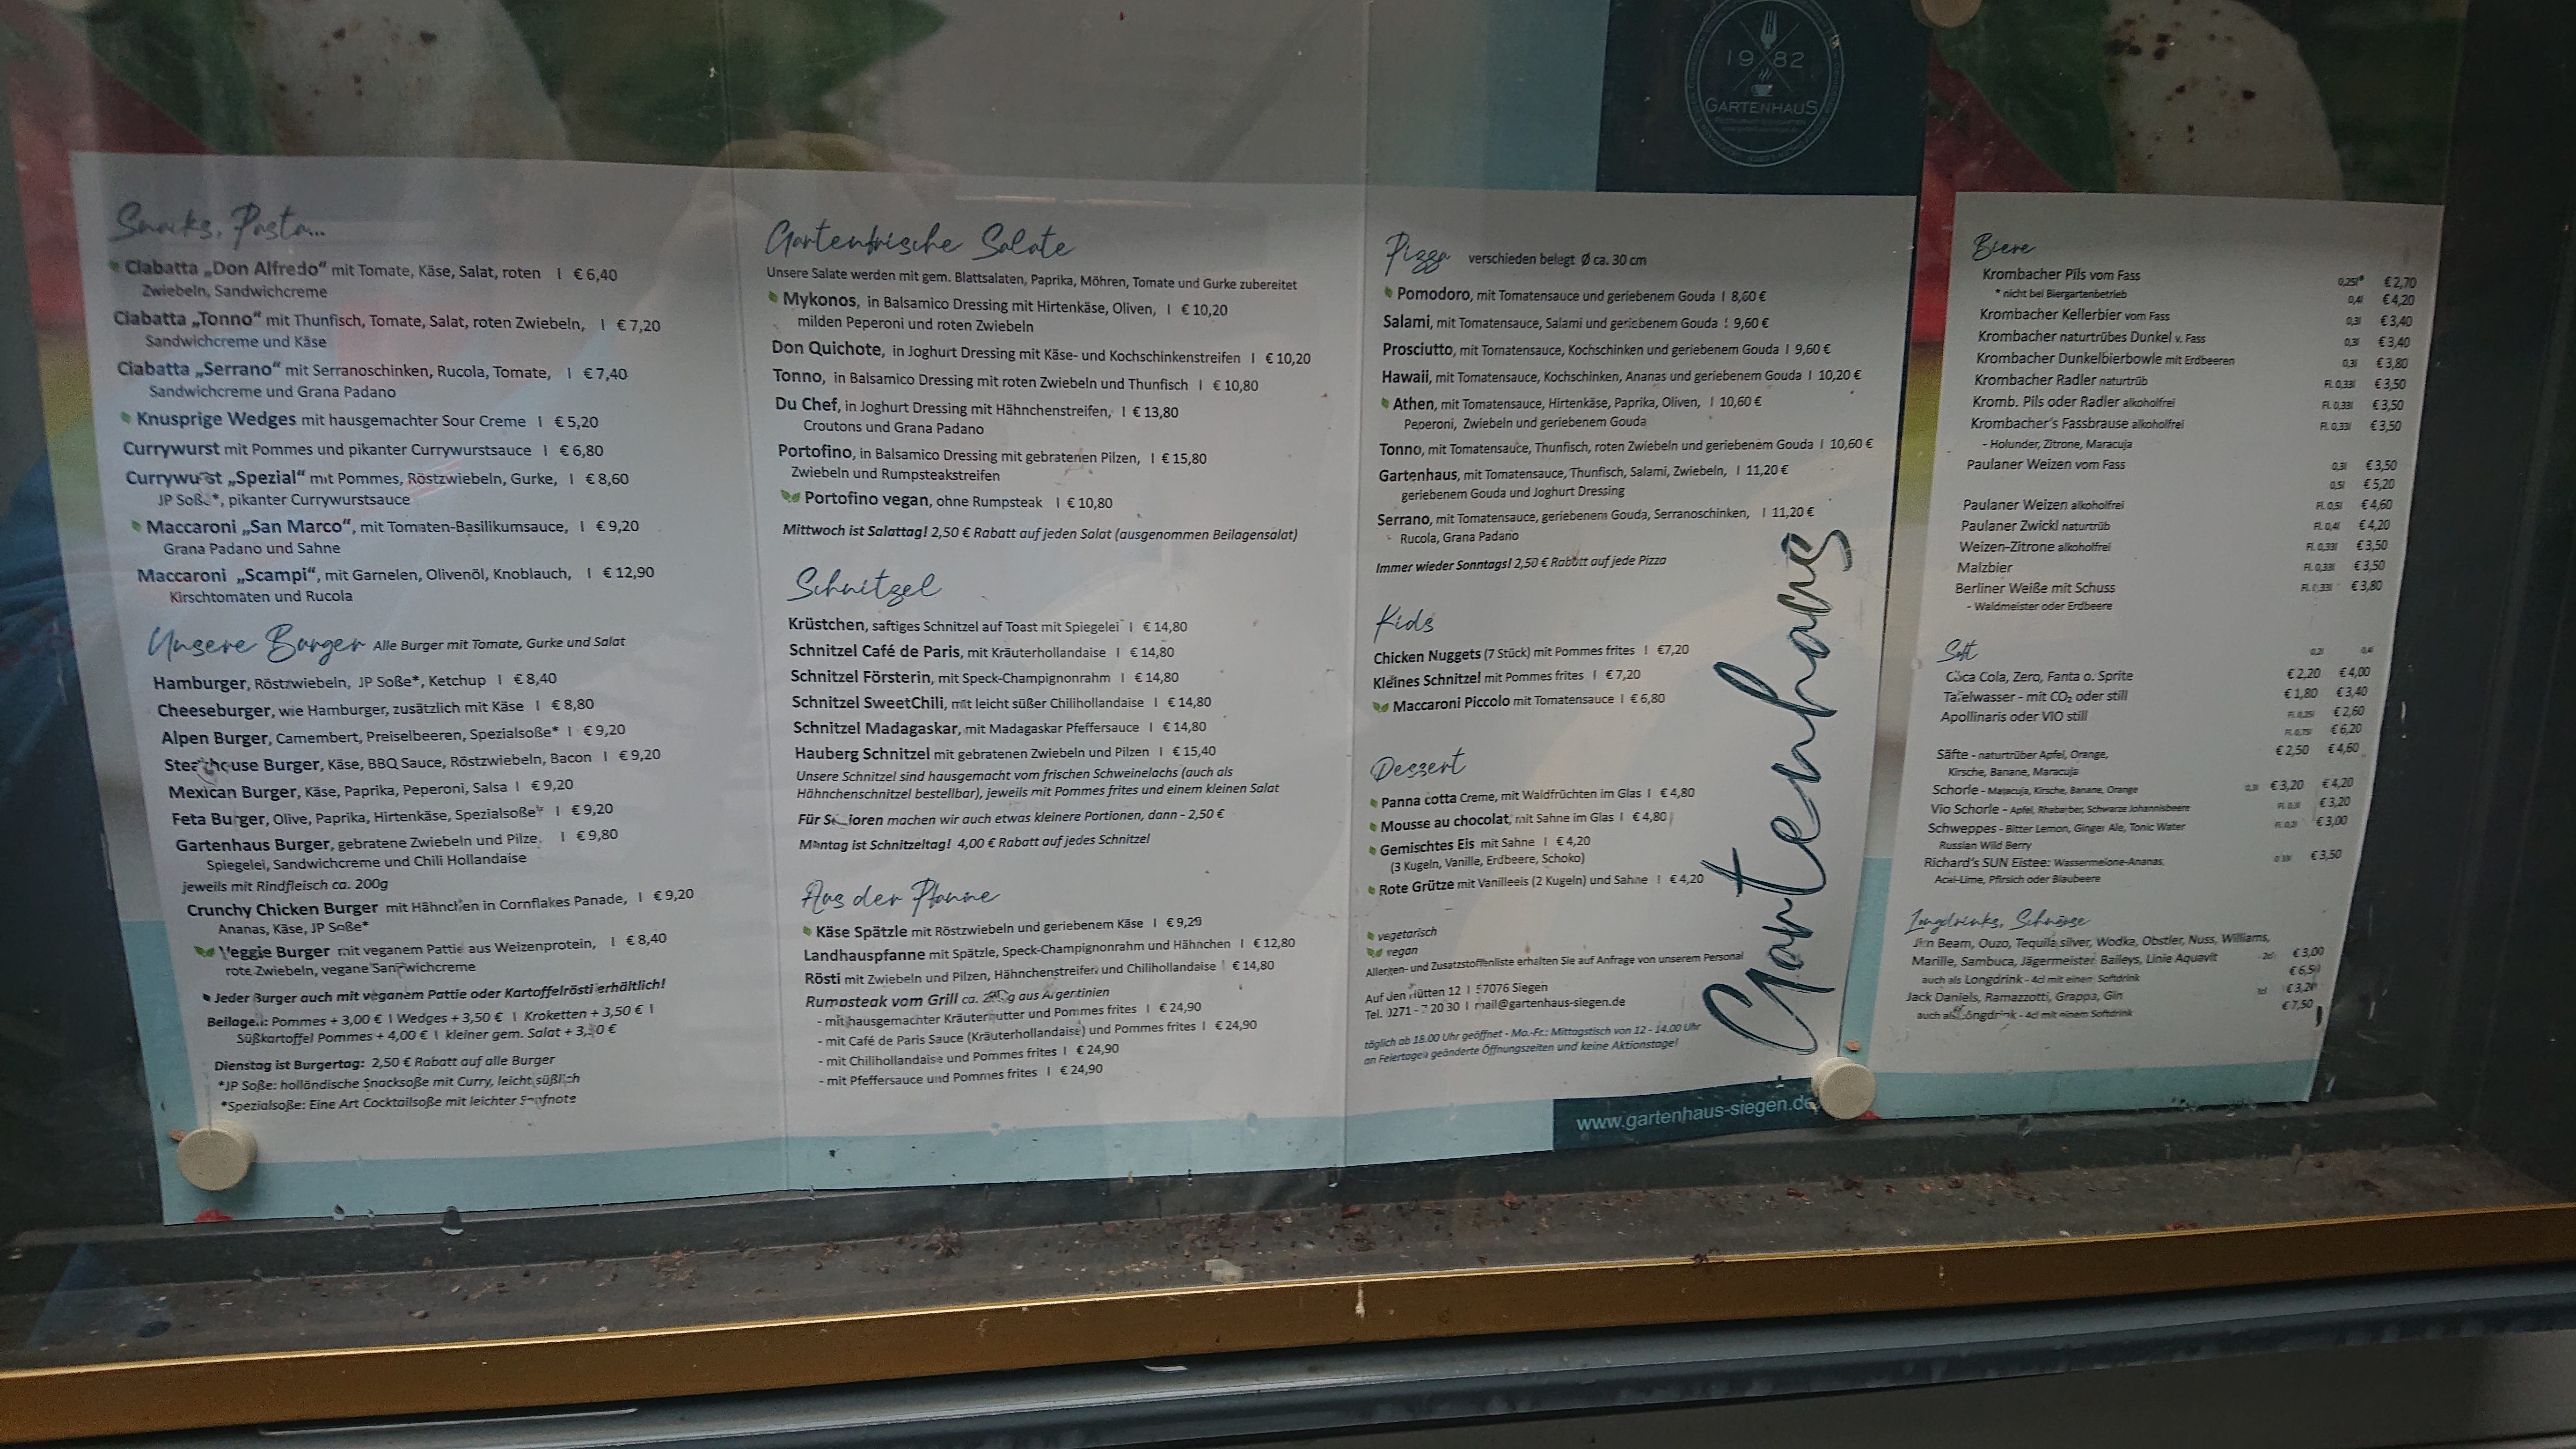 Snacks, Pasta...
Ciabatta „Don Alfredo“ mit Tomate, Käse, Salat, roten I € 6,40
Zwiebeln, Sandwichcreme
Ciabatta „Tonno“ mit Thunfisch, Tomate, Salat, roten Zwiebeln, I € 7,20
Sandwichcreme und Käse
Ciabatta „Serrano“ mit Serranoschinken, Rucola, Tomate, I € 7,40
Sandwichcreme und Grana Padano
Knusprige Wedges mit hausgemachter Sour Creme I € 5,20
Currywurst mit Pommes und pikanter Currywurstsauce I € 6,80
Currywurst „Spezial“ mit Pommes, Röstzwiebeln, Gurke, I € 8,60
JP Soße*, pikanter Currywurstsauce
Maccaroni „San Marco“, mit Tomaten-Basilikumsauce, I € 9,20
Grana Padano und Sahne
Maccaroni „Scampi“, mit Garnelen, Olivenöl, Knoblauch, I € 12,90
Kirschtomaten und Rucola
Unsere Burger Alle Burger mit Tomate, Gurke und Salat
Hamburger, Röstzwiebeln, JP Soße*, Ketchup I € 8,40
Cheeseburger, wie Hamburger, zusätzlich mit Käse I € 8,80
Alpen Burger, Camembert, Preiselbeeren, Spezialsoße* I € 9,20
Steakhouse Burger, Käse, BBQ Sauce, Röstzwiebeln, Bacon I € 9,20
Mexican Burger, Käse, Paprika, Peperoni, Salsa I € 9,20
Feta Burger, Olive, Paprika, Hirtenkäse, Spezialsoße* I € 9,20
Gartenhaus Burger, gebratene Zwiebeln und Pilze, I € 9,80
Spiegelei, Sandwichcreme und Chili Hollandaise
jeweils mit Rindfleisch ca. 200g
Crunchy Chicken Burger mit Hähnchen in Cornflakes Panade, I € 9,20
Ananas, Käse, JP Soße*
Veggie Burger mit veganem Pattie aus Weizenprotein, I € 8,40
rote Zwiebeln, vegane Sandwichcreme
Jeder Burger auch mit veganem Pattie oder Kartoffelrösti erhältlich!
Beilagen: Pommes + 3,00 € I Wedges + 3,50 € I Kroketten + 3,50 € I
Süßkartoffel Pommes + 4,00 € I kleiner gem. Salat
Dienstag ist Burgertag: 2,50 € Rabatt auf alle Burger
*JP Soße: holländische Snacksoße mit Curry, leicht süßlich
*Spezialsoße: Eine Art Cocktailsoße mit leichter Senfnote
Gartenfrische Salate
Unsere Salate werden mit gem. Blattsalaten, Paprika, Möhren, Tomate und Gurke zubereitet
Mykonos, in Balsamico Dressing mit Hirtenkäse, Oliven, I € 10,20
milden Peperoni und roten Zwiebeln
Don Quichote, in Joghurt Dressing mit Käse- und Kochschinkenstreifen I € 10,20
Tonno, in Balsamico Dressing mit roten Zwiebeln und Thunfisch I € 10,80
Du Chef, in Joghurt Dressing mit Hähnchenstreifen, I € 13,80
Croutons und Grana Padano
Portofino, in Balsamico Dressing mit gebratenen Pilzen, I € 15,80
Zwiebeln und Rumpsteakstreifen
Portofino vegan, ohne Rumpsteak I € 10,80
Mittwoch ist Salattag! 2,50 € Rabatt auf jeden Salat (ausgenommen Beilagensalat)
Schnitzel
Krüstchen, saftiges Schnitzel auf Toast mit Spiegelei I € 14,80
Schnitzel Café de Paris, mit Kräuterhollandaise I € 14,80
Schnitzel Försterin, mit Speck-Champignonrahm I € 14,80
Schnitzel SweetChili, mit leicht süßer Chilihollandaise I € 14,80
Schnitzel Madagaskar, mit Madagaskar Pfeffersauce I € 14,80
Hauberg Schnitzel mit gebratenen Zwiebeln und Pilzen I € 15,40
Unsere Schnitzel sind hausgemacht vom frischen Schweinelachs (auch als
Hähnchenschnitzel bestellbar), jeweils mit Pommes frites und einem kleinen Salat
Für Senioren machen wir auch etwas kleinere Portionen, dann - 2,50 €
Montag ist Schnitzeltag! 4,00 € Rabatt auf jedes Schnitzel
Aus der Pfanne
Käse Spätzle mit Röstzwiebeln und geriebenem Käse I € 9,20
Landhauspfanne mit Spätzle, Speck-Champignonrahm und Hähnchen I € 12,80
Rösti mit Zwiebeln und Pilzen, Hähnchenstreifen und Chilihollandaise I € 14,80
Rumpsteak vom Grill ca. aus Argentinien
- mit hausgemachter Kräuterbutter und Pommes frites I € 24,90
- mit Café de Paris Sauce (Kräuterhollandaise) und Pommes frites I € 24,90
- mit Chilihollandaise und Pommes frites I € 24,90
- mit Pfeffersauce und Pommes frites I € 24,90
1982
GARTENHAUS
Pizza verschieden belegt Ø ca. 30 cm
Pomodoro, mit Tomatensauce und geriebenem Gouda I 8,60 €
Salami, mit Tomatensauce, Salami und geriebenem Gouda I 9,60 €
Prosciutto, mit Tomatensauce, Kochschinken und geriebenem Gouda I 9,60 €
Hawaii, mit Tomatensauce, Kochschinken, Ananas und geriebenem Gouda I 10,20 €
Athen, mit Tomatensauce, Hirtenkäse, Paprika, Oliven, I 10,60 €
Peperoni, Zwiebeln und geriebenem Gouda
Tonno, mit Tomatensauce, Thunfisch, roten Zwiebeln und geriebenem Gouda I 10,60 €
Gartenhaus, mit Tomatensauce, Thunfisch, Salami, Zwiebeln, I 11,20 €
geriebenem Gouda und Joghurt Dressing
Serrano, mit Tomatensauce, geriebenem Gouda, Serranoschinken, I 11,20 €
Rucola, Grana Padano
Immer wieder Sonntags! 2,50 € Rabatt auf jede Pizza
Kids
Chicken Nuggets (7 Stück) mit Pommes frites I €7,20
Kleines Schnitzel mit Pommes frites I € 7,20
Maccaroni Piccolo mit Tomatensauce I € 6,80
Dessert
Panna cotta Creme, mit Waldfrüchten im Glas I € 4,80
Mousse au chocolat, mit Sahne im Glas I € 4,80
Gemischtes Eis mit Sahne I € 4,20
(3 Kugeln, Vanille, Erdbeere, Schoko)
Rote Grütze mit Vanilleeis (2 Kugeln) und Sahne I € 4,20
vegetarisch
vegan
Allergen- und Zusatzstoffenliste erhalten Sie auf Anfrage von unserem Personal
Auf den Hütten 12 I 57076 Siegen
Tel. 0271 - 20 30 I mail@gartenhaus-siegen.de
täglich ab 18.00 Uhr geöffnet - Mo.-Fr.: Mittagstisch von 12 - 14.00 Uhr
an Feiertagen geänderte Öffnungszeiten und keine Aktionstage!
Gartenhaus
www.gartenhaus-siegen.de
Biere
Krombacher Pils vom Fass 0,25l* € 2,70
* nicht bei Biergartenbetrieb 0,4l € 4,20
Krombacher Kellerbier vom Fass 0,3l € 3,40
Krombacher naturtrübes Dunkel v. Fass 0,3l € 3,40
Krombacher Dunkelbierbowle mit Erdbeeren 0,3l € 3,80
Krombacher Radler naturtrüb Fl. 0,33l € 3,50
Kromb. Pils oder Radler alkoholfrei Fl. 0,33l € 3,50
Krombacher's Fassbrause alkoholfrei Fl. 0,33l € 3,50
- Holunder, Zitrone, Maracuja
Paulaner Weizen vom Fass 0,3l € 3,50
0,5l € 5,20
Paulaner Weizen alkoholfrei Fl. 0,5l € 4,60
Paulaner Zwickl naturtrüb Fl. 0,4l € 4,20
Weizen-Zitrone alkoholfrei Fl. 0,33l € 3,50
Malzbier Fl. 0,33l € 3,50
Berliner Weiße mit Schuss Fl. 0,33l € 3,80
- Waldmeister oder Erdbeere
Soft 0,2l 0,4l
Coca Cola, Zero, Fanta o. Sprite € 2,20 € 4,00
Tafelwasser - mit CO₂ oder still € 1,80 € 3,40
Apollinaris oder VIO still Fl. 0,25l € 2,60
Fl. 0,75l € 6,20
Säfte - naturtrüber Apfel, Orange, € 2,50 € 4,60
Kirsche, Banane, Maracuja
Schorle - Maracuja, Kirsche, Banane, Orange 0,3l € 3,20 € 4,20
Vio Schorle - Apfel, Rhabarber, Schwarze Johannisbeere Fl. 0,3l € 3,20
Schweppes - Bitter Lemon, Ginger Ale, Tonic Water Fl. 0,2l € 3,00
Russian Wild Berry
Richard's SUN Eistee: Wassermelone-Ananas, € 3,50
Acai-Lime, Pfirsich oder Blaubeere
Longdrinks, Schnäpse
Jim Beam, Ouzo, Tequila silver, Wodka, Obstler, Nuss, Williams,
Marille, Sambuca, Jägermeister, Baileys, Linie Aquavit 2cl € 3,00
auch als Longdrink - 4cl mit einem Softdrink € 6,50
Jack Daniels, Ramazzotti, Grappa, Gin € 3,20
auch als Longdrink - 4cl mit einem Softdrink € 7,50